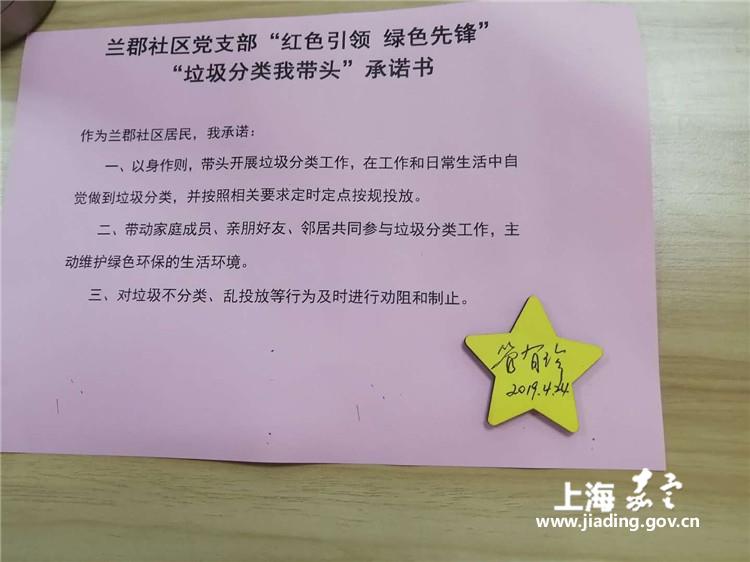 兰郡社区党支部“红色引领 绿色先锋”
“垃圾分类我带头”承诺书
作为兰郡社区居民，我承诺：
一、以身作则，带头开展垃圾分类工作，在工作和日常生活中自
觉做到垃圾分类，并按照相关要求定时定点按规投放。
二、带动家庭成员、亲朋好友、邻居共同参与垃圾分类工作，主
动维护绿色环保的生活环境。
三、对垃圾不分类、乱投放等行为及时进行劝阻和制止。
管有珍
2019.4.24
上海嘉定
www.jiading.gov.cn